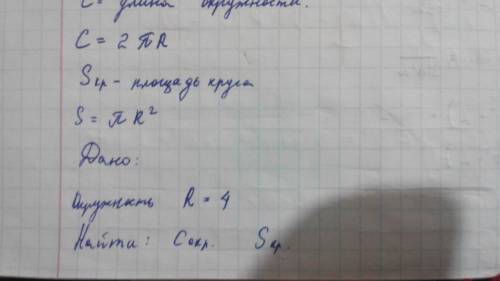 C = длина окружности.
C = 2πR
Sкр - площадь круга
S = πR²
Дано:
Окружность R = 4
Найти: Cокр. Sкр.